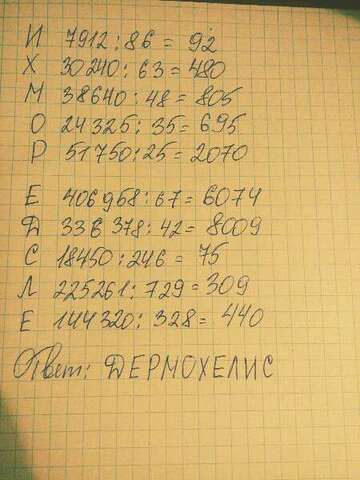 И 7912 : 86 = 92
Х 30240 : 63 = 480
М 38640 : 48 = 805
О 24325 : 35 = 695
Р 51750 : 25 = 2070
Е 406958 : 67 = 6074
Д 336378 : 42 = 8009
С 18450 : 246 = 75
Л 225261 : 729 = 309
Е 144320 : 328 = 440
Ответ: ДЕРМОХЕЛИС